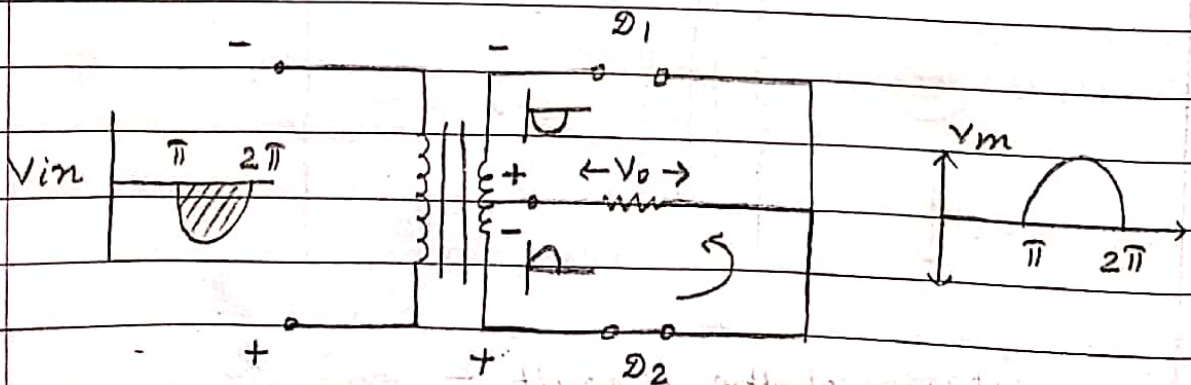 D1
- -
Vin π 2π
+ ←Vo→
-
Vm
π 2π
- + + D2